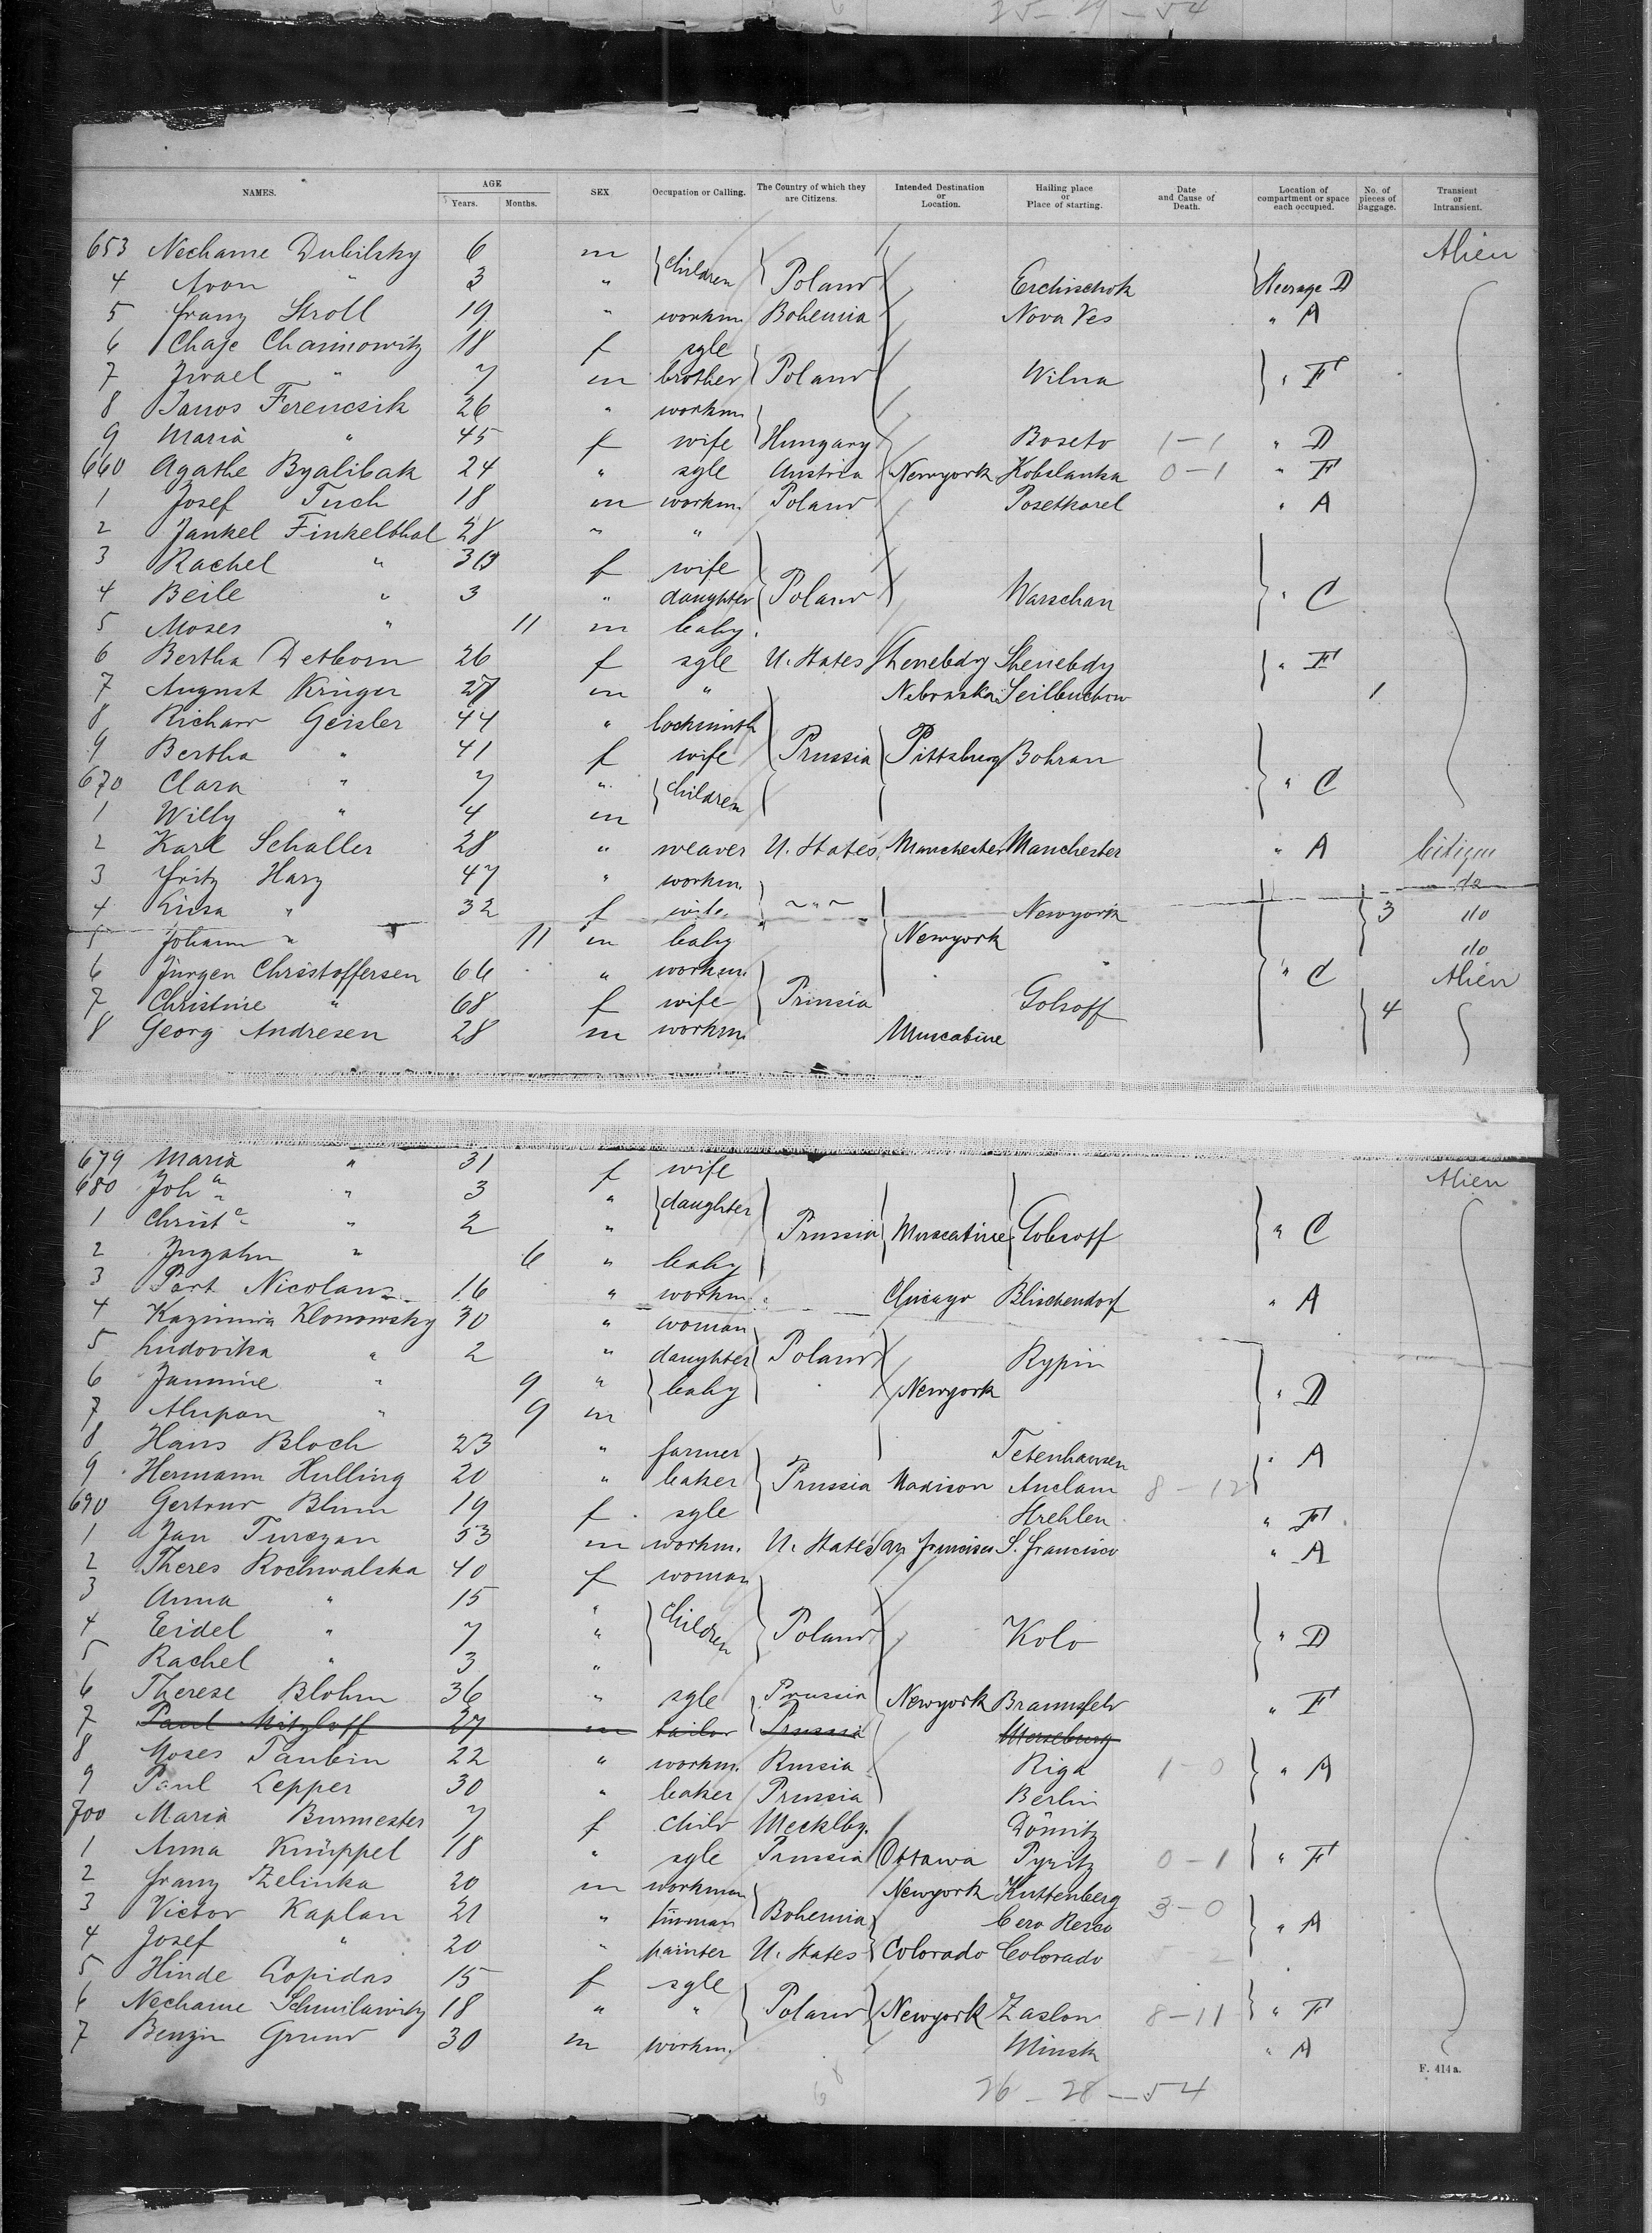 25-29-54
NAMES. AGE Years. Months. SEX Occupation or Calling. The Country of which they are Citizens. Intended Destination or Location. Hailing place or Place of starting. Date and Cause of Death. Location of compartment or space each occupied. No. of pieces of Baggage. Transient or Intransient.
653 Nechame Dubilsky 6 m children Poland Steerage D Alien
4 " 3 "
5 Franz Stroll 19 " workm. Bohemia Nova Ves " A
6 Chaje Chaimowitz 18 f sgle
7 Israel " 7 m brother Poland Wilna " F
8 Janos Ferencsik 26 " workm.
9 Maria " 45 f wife Hungary Boseto 1-1 " D
660 Agathe Byalibak 24 " sgle Austria Newyork Kobelanka 0-1 " F
1 Josef Tuch 18 m workm. Poland " A
2 Jankel Finkelthal 28 " "
3 Rachel " 30 f wife
4 Beile " 3 " daughter Poland Warschau " C
5 Moses " 11 m baby.
6 Bertha Detborn 26 f sgle U. States " F
7 August Krüger 27 m " Nebraska 1
8 Richard Geisler 44 " locksmith
9 Bertha " 41 f wife Prussia Pittsburg Bohran
670 Clara " 7 " children " C
1 Willy " 4 m
2 Karl Schaller 28 " weaver U. States Manchester Manchester " A Citizen
3 Fritz Harz 47 " workm. do
4 " 32 f wife " Newyork 3 do
5 Johann " 11 m baby Newyork " do
6 Jürgen Christoffersen 66 " workm. " C Alien
7 Christine " 68 f wife Prussia Golsoff 4
8 Georg Andresen 28 m workm. Muscatine
679 Maria " 31 f wife Alien
680 Joha " 3 " daughter
1 Christe " 2 " Prussia Muscatine Golsoff " C
2 " 6 " baby
3 Part Nicolaus 16 " workm. Chicago Blischendorf " A
4 Kazimira Klonowsky 30 " woman
5 Ludovika " 2 " daughter Poland Rypin
6 Jannine " 9 " baby Newyork " D
7 " 9 m
8 Hans Bloch 23 " farmer Tetenhausen " A
9 Hermann Hulling 20 " baker Prussia Madison Anclam 8-12
690 Gertrud Blum 19 f sgle Strehlen " F
1 Jan Turczan 53 m workm. U. States San Francisco S. Francisco " A
2 Theres Rochwalska 40 f woman
3 Anna " 15 " children
4 Eidel " 7 " Poland Kolo " D
5 Rachel " 3 "
6 Therese Blohm 36 " sgle Prussia Newyork Braunsfeld " F
7 Paul Mitzloff 27 m tailor Prussia Merseburg
8 Moses Taubin 22 " workm. Russia Riga 1-0 " A
9 Paul Lepper 30 " baker Prussia Berlin
700 Maria Burmester 7 f child Mecklbg. Dömitz
1 Anna Knüppel 18 " sgle Prussia Ottawa Pyritz 0-1 " F
2 Franz Zelinka 20 m workman Newyork Kuttenberg
3 Victor Kaplan 21 " Bohemia 3-0 " A
4 Josef " 20 " painter U. States Colorado Colorado 2
5 Hinde Lopidas 15 f sgle
6 Nechame Schmilawitz 18 " " Poland Newyork Zaslow 8-11 " F
7 Benzin Grund 30 m workm. Minsk " A
F. 414a.
26-28-54